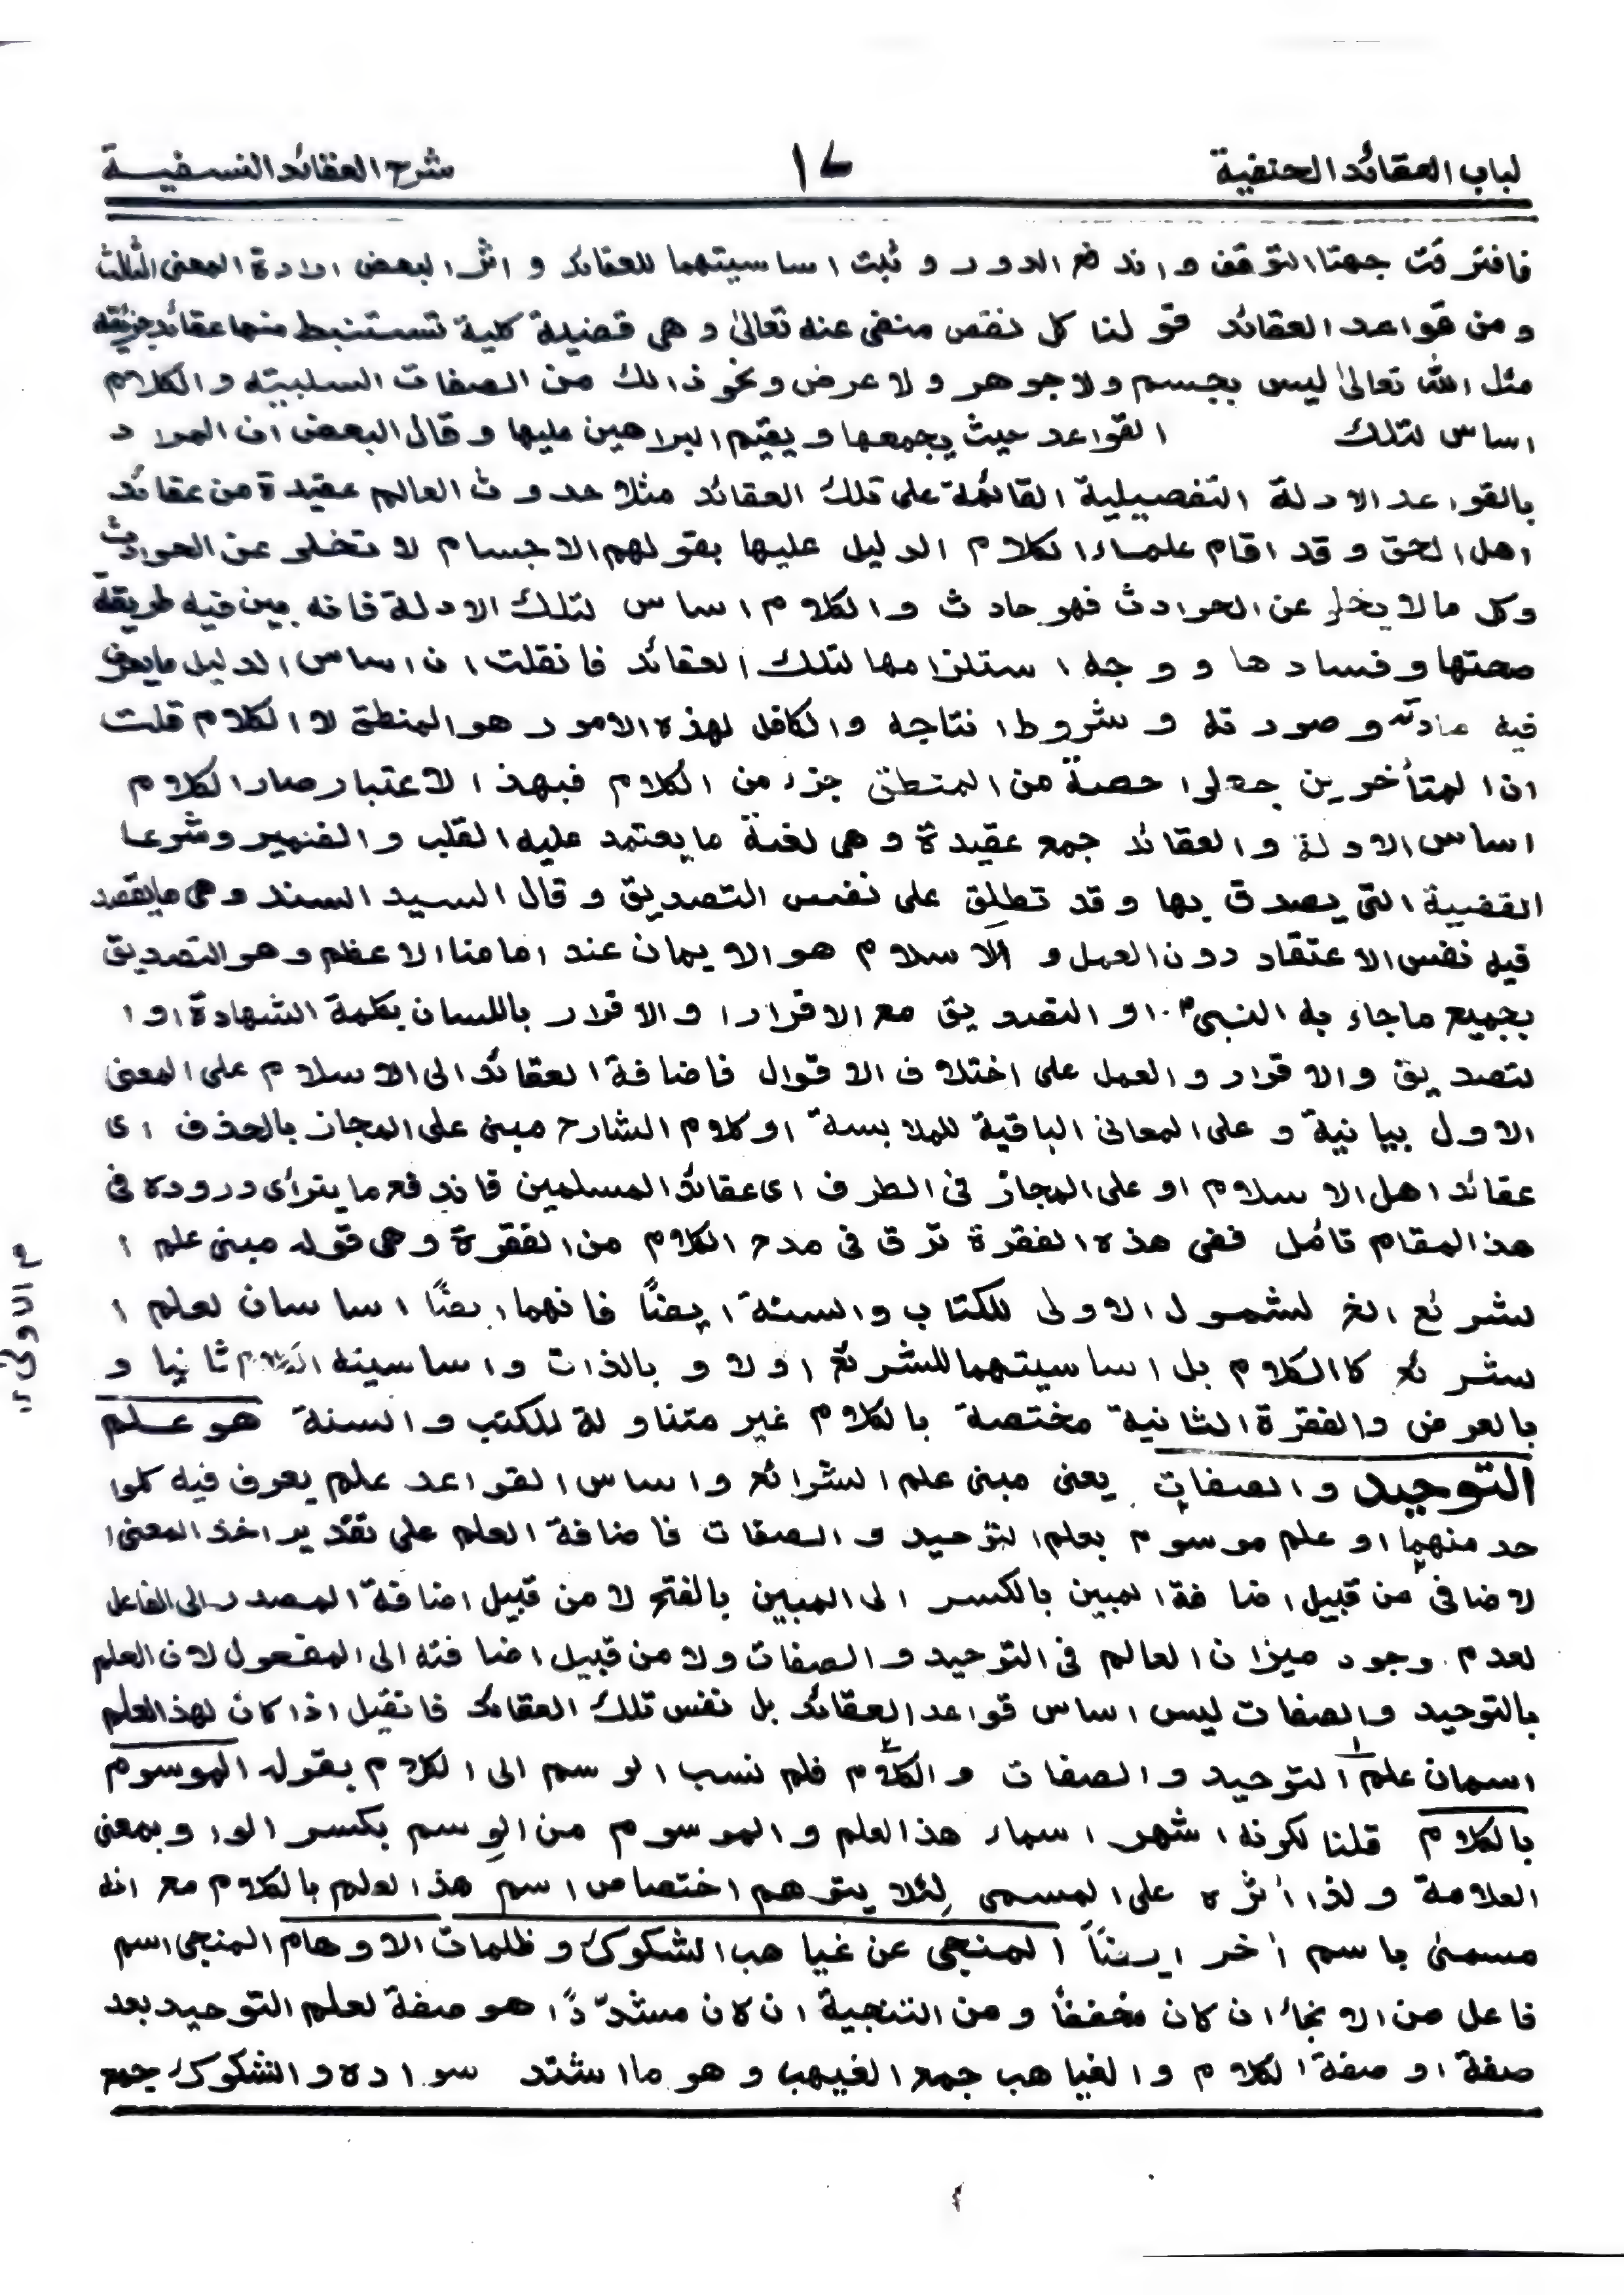 لباب العقائد الحنفية ١٤ شرح العقائد النسفيـة
فافترقت جهتا التوقف و اندفع الدور و ثبت اساسيتهما للعقائد و اثر البعض ارادة المعنى الثالث
و من قواعد العقائد قولنا كل نقص منفى عنه تعالىٰ و هى قضية كلية تستنبط منها عقائد جزئية
مثل الله تعالىٰ ليس بجسم ولا جوهر و لا عرض و نحو ذالك من الصفات السلبية و الكلام
اساس لتلك القواعد حيث يجمعها و يقيم البراهين عليها و قال البعض ان المراد
بالقواعد الادلة التفصيلية القائمة على تلك العقائد مثلا حدوث العالم عقيدة من عقائد
اهل الحق و قد اقام علماء الكلام الدليل عليها بقولهم الاجسام لا تخلو عن الحوادث
وكل ما لا يخلو عن الحوادث فهو حادث و الكلام اساس لتلك الادلة فانه يبين فيه طريقة
صحتها و فسادها و وجه استلزامها لتلك العقائد فانقلت ان اساس الدليل ما يعرف
فيه مادته و صورته و شروط انتاجه و الكافل لهذه الامور هو المنطق لا الكلام قلت
ان المتأخرين جعلوا حصة من المنطق جزء من الكلام فبهذ الاعتبار صار الكلام
اساس الادلة و العقائد جمع عقيدة و هى لغة ما يعتمد عليه القلب و الضمير و شرعا
القضية التى يصدق بها و قد تطلق على نفس التصديق و قال السيد السند و هى ما يقصد
فيه نفس الاعتقاد دون العمل و الاسلام هو الايمان عند امامنا الاعظم و هو التصديق
بجميع ما جاء به النبى ؐ او التصديق مع الاقرار ا والاقرار باللسان بكلمة الشهادة او ا
لتصديق والاقرار و العمل على اختلاف الاقوال فاضافة العقائد الى الاسلام على المعنى
الاول بيانية و على المعانى الباقية للملابسة او كلام الشارح مبنى على المجاز بالحذف اى
عقائد اهل الاسلام او على المجاز فى الطرف اى عقائد المسلمين فاندفع ما يترأى وروده فى
هذ المقام تأمل ففى هذه الفقرة ترق فى مدح الكلام من الفقرة و هى قوله مبنى علم ا
لشرئع الخ لشمول الاولى للكتاب والسنة ايضًا فانهما ايضًا اساسان لعلم ا
لشرئع كا الكلام بل اساسيتهما للشرئع اولا و بالذات و اساسيته الكلام ثانيا و
بالعرض والفقرة الثانية مختصة بالكلام غير متناولة للكتب و السنة هو عـلم
التوحيد و الصفات يعنى مبنى علم الشرائع و اساس القواعد علم يعرف فيه كلوا
حد منهما او علم موسوم بعلم التوحيد و الصفات فاضافة العلم على تقدير اخذ المعنى ا
لاضافى من قبيل اضافة المبين بالكسر الى المبين بالفتح لا من قبيل اضافة المصدر الى الفاعل
لعدم وجود ميزان العالم فى التوحيد و الصفات ولا من قبيل اضافته الى المفعول لان العلم
بالتوحيد و الصفات ليس اساس قواعد العقائد بل نفس تلك العقائد فانقيل اذا كان لهذ العلم
اسمان علم التوحيد و الصفات و الكلام فلم نسب الوسم الى الكلام بقوله الموسوم
بالكلام قلنا لكونه اشهر اسماء هذ العلم و الموسوم من الوِسم بكسر الواو بمعنى
العلامة و لذا أثره على المسمى لِئلا يتوهم اختصاص اسم هذ العلم بالكلام مع انه
مسمىٰ باسم أخر ايضًا المنجى عن غياهب الشكوك و ظلمات الاوهام المنجى اسم
فاعل من الانجاء ان كان مخففًا و من التنجية ان كان مشدّدًا هو صفة لعلم التوحيد بعد
صفة او صفة الكلام و الغياهب جمع الغيهب و هو ما اشتد سواده و الشكوك جمع
الاولى